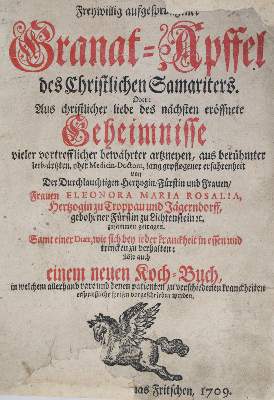 Freywillig aufgesprungener
Granat-Apffel
des Christlichen Samariters.
Oder:
Aus christlicher liebe des nächsten eröffnete
Geheimnisse
vieler vortrefflicher bewährter artzneyen, aus berühmter
leib-ärtzten, oder Medicin-Doctorn, lang gepflogener erfahrenheit
von
Der Durchlauchtigen Hertzogin Fürstin und Frauen,
Frauen ELEONORA MARIA ROSALIA,
Hertzogin zu Troppau und Jägerndorff,
gebohrner Fürstin zu Lichtenstein ꝛc.
zusammen getragen.
Samt einer Diæt, wie sich bey jeder kranckheit in essen und
trincken zu verhalten:
Als auch
einem neuen Koch-Buch,
in welchem allerhand rare und denen patienten zu verschiedenen kranckheiten
speisen vorgeschrieben werden.
Fritschen, 1709.